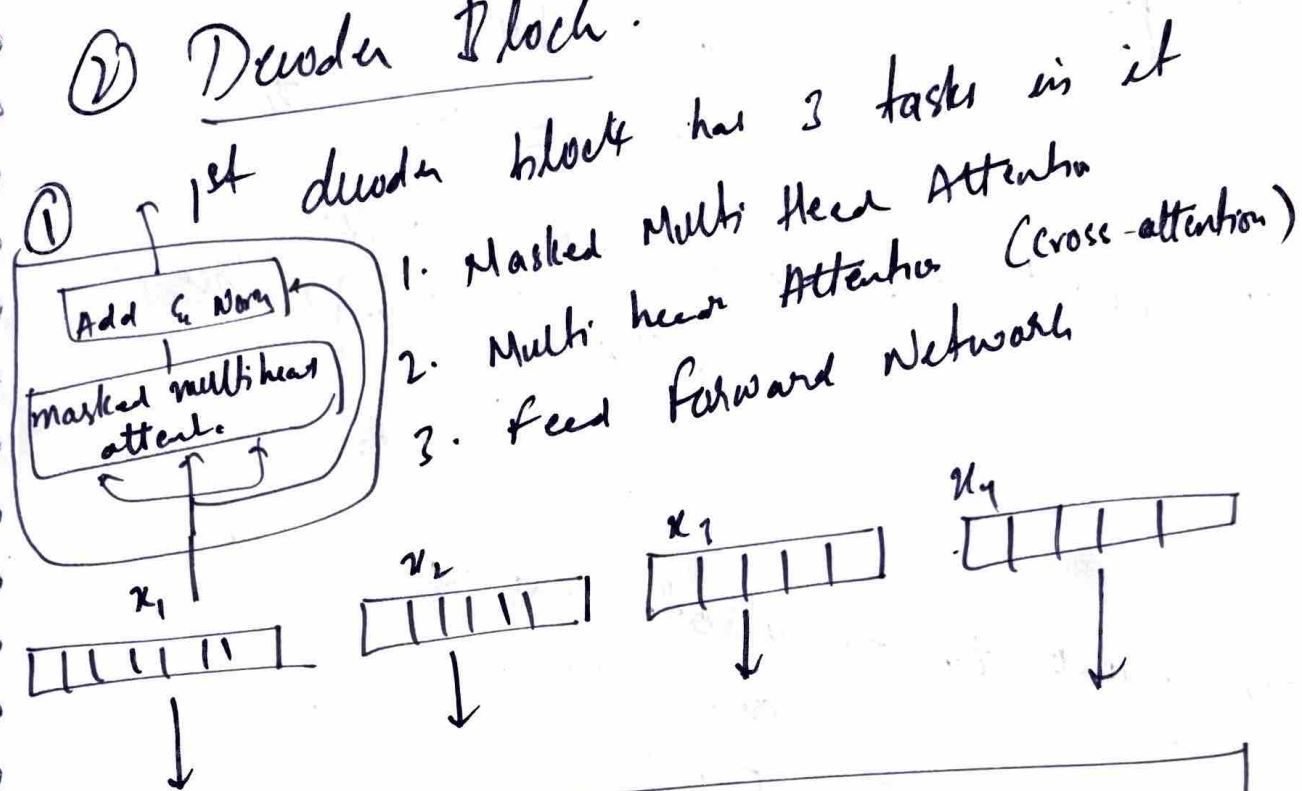 ② Decoder Block.
1st decoder block has 3 tasks in it
1. Masked Multi Head Attention
2. Multi head Attention (cross-attention)
3. Feed Forward Network
①
Add & Norm
masked multihead
attent.
x₁
x₂
x₃
x₄